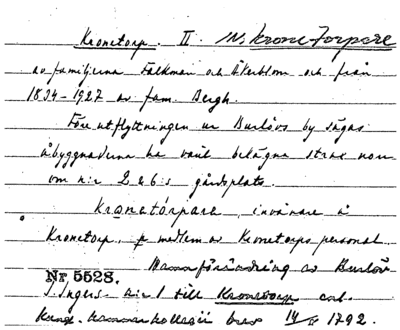 Kronetorp. II. N. Krone-torpare
av familjerna Falkman och Åkerblom och från
1834-1927 av fam. Bergh.
Före utflyttningen ur Burlövs by sägas
åbyggnaderna ha varit belägna strax norr
om n:r 2 & 6:s gårdsplats.
Kronetórpara, invånare å
Kronetorp, medlem av Kronetorps personal
Namnförändring av Burlöv
Nr 5528.
S. Inges. n:r 1 till Kronetorp enl.
Kungl. Kammarkollegii brev 14/5 1792.